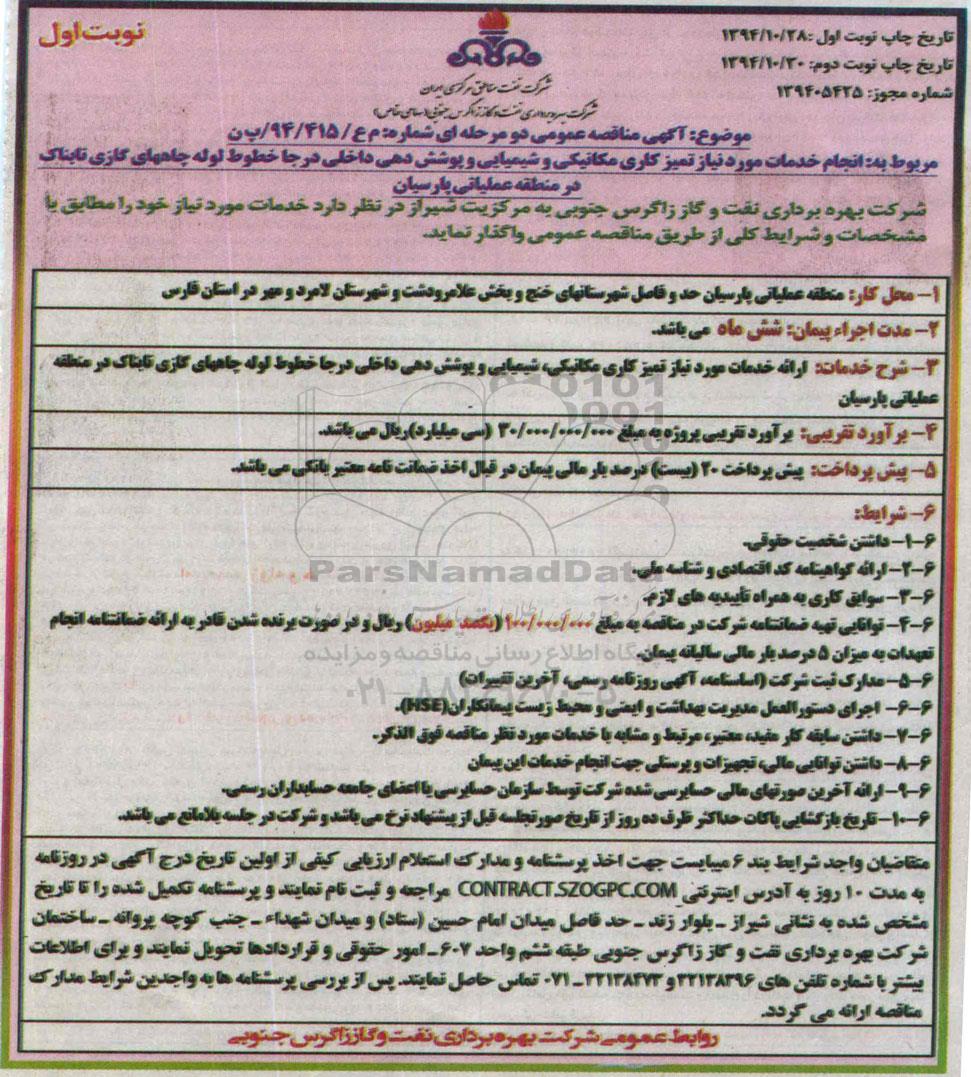 نوبت اول
تاریخ چاپ نوبت اول :۱۳۹۴/۱۰/۲۸
تاریخ چاپ نوبت دوم: ۱۳۹۴/۱۰/۳۰
شماره مجوز: ۱۳۹۴۰۵۴۲۵
شرکت نفت مناطق مرکزی ایران
شرکت بهره برداری نفت و گاز زاگرس جنوبی (سهامی خاص)
موضوع: آگهی مناقصه عمومی دو مرحله ای شماره: م ع/ ۹۴/۴۱۵/پ ن
مربوط به: انجام خدمات مورد نیاز تمیز کاری مکانیکی و شیمیایی و پوشش دهی داخلی درجا خطوط لوله چاههای گازی تابناک
در منطقه عملیاتی پارسیان
شرکت بهره برداری نفت و گاز زاگرس جنوبی به مرکزیت شیراز در نظر دارد خدمات مورد نیاز خود را مطابق با
مشخصات و شرایط کلی از طریق مناقصه عمومی واگذار نماید.
۱- محل کار: منطقه عملیاتی پارسیان حد و فاصل شهرستانهای خنج و بخش علامرودشت و شهرستان لامرد و مهر در استان فارس
۲- مدت اجراء پیمان: شش ماه می باشد.
۳- شرح خدمات: ارائه خدمات مورد نیاز تمیز کاری مکانیکی، شیمیایی و پوشش دهی داخلی درجا خطوط لوله چاههای گازی تابناک در منطقه
عملیاتی پارسیان
۴- برآورد تقریبی: برآورد تقریبی پروژه به مبلغ ۳۰/۰۰۰/۰۰۰/۰۰۰ (سی میلیارد)ریال می باشد.
۵- پیش پرداخت: پیش پرداخت ۲۰ (بیست) درصد بار مالی پیمان در قبال اخذ ضمانت نامه معتبر بانکی می باشد.
۶- شرایط:
۶-۱- داشتن شخصیت حقوقی.
۶-۲- ارائه گواهینامه کد اقتصادی و شناسه ملی.
ParsNamadData
۶-۳- سوابق کاری به همراه تأییدیه های لازم.
۶-۴- توانایی تهیه ضمانتنامه شرکت در مناقصه به مبلغ ۱۰۰/۰۰۰/۰۰۰ (یکصد میلیون) ریال و در صورت برنده شدن قادر به ارائه ضمانتنامه انجام
تعهدات به میزان ۵ درصد بار مالی سالیانه پیمان.
پایگاه اطلاع رسانی مناقصه و مزایده
۶-۵- مدارک ثبت شرکت (اساسنامه، آگهی روزنامه رسمی، آخرین تغییرات)
۰۲۱-۸۸۳۴۹۶۷۰-۵
۶-۶- اجرای دستورالعمل مدیریت بهداشت و ایمنی و محیط زیست پیمانکاران(HSE).
۶-۷- داشتن سابقه کار مفید، معتبر، مرتبط و مشابه با خدمات مورد نظر مناقصه فوق الذکر.
۶-۸- داشتن توانایی مالی، تجهیزات و پرسنلی جهت انجام خدمات این پیمان
۶-۹- ارائه آخرین صورتهای مالی حسابرسی شده شرکت توسط سازمان حسابرسی یا اعضای جامعه حسابداران رسمی.
۶-۱۰- تاریخ بازگشایی پاکات حداکثر ظرف ده روز از تاریخ صورتجلسه قبل از پیشنهاد نرخ می باشد و شرکت در جلسه بلامانع می باشد.
متقاضیان واجد شرایط بند ۶ میبایست جهت اخذ پرسشنامه و مدارک استعلام ارزیابی کیفی از اولین تاریخ درج آگهی در روزنامه
به مدت ۱۰ روز به آدرس اینترنتی CONTRACT.SZOGPC.COM مراجعه و ثبت نام نمایند و پرسشنامه تکمیل شده را تا تاریخ
مشخص شده به نشانی شیراز ـ بلوار زند ـ حد فاصل میدان امام حسین (ستاد) و میدان شهداء ـ جنب کوچه پروانه ـ ساختمان
شرکت بهره برداری نفت و گاز زاگرس جنوبی طبقه ششم واحد ۶۰۷ـ امور حقوقی و قراردادها تحویل نمایند و برای اطلاعات
بیشتر با شماره تلفن های ۳۲۱۳۸۳۹۶ و ۳۲۱۳۸۴۷۳ـ ۰۷۱ تماس حاصل نمایند. پس از بررسی پرسشنامه ها به واجدین شرایط مدارک
مناقصه ارائه می گردد.
روابط عمومی شرکت بهره برداری نفت و گاز زاگرس جنوبی